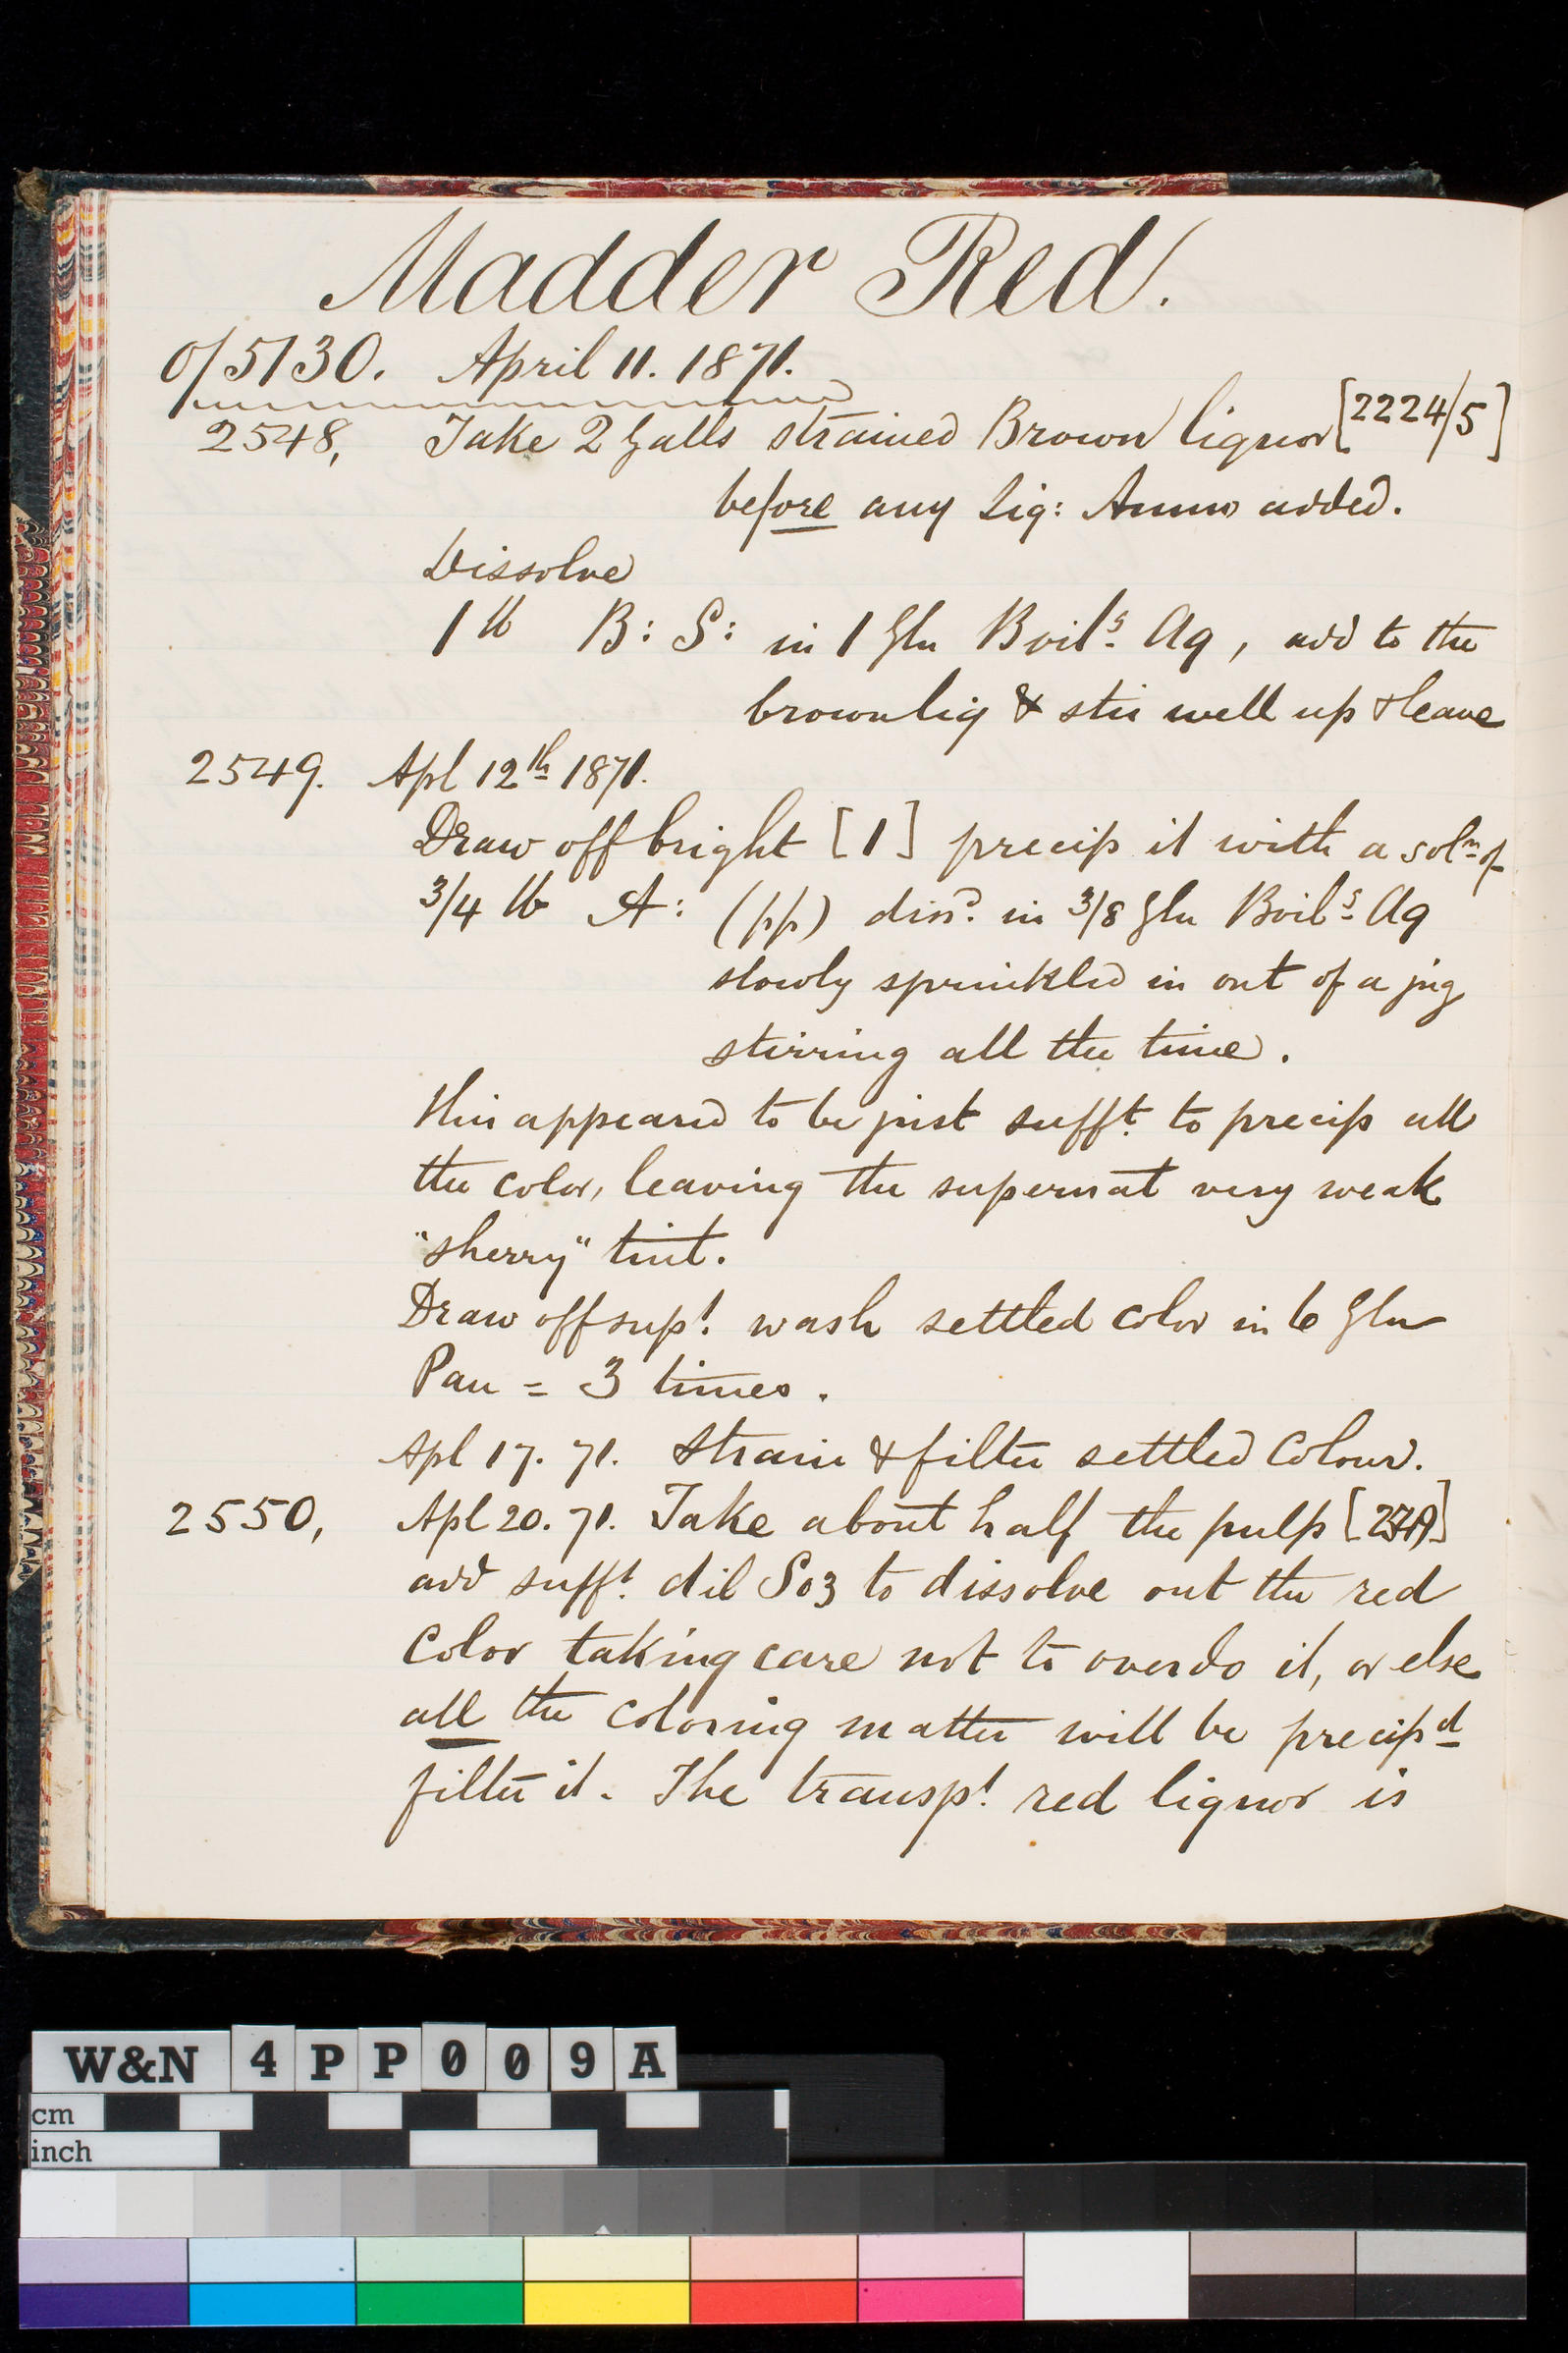 Madder Red.
o/5130. April 11. 1871.
2548, Take 2 Galls strained Brown liquor [2224/5]
before any Liq: Ammo added.
Dissolve
1 lb B: S: in 1 Gln Boilg Aq, add to the
brown liq & stir well up & leave
2549. Apl 12th 1871.
Draw off bright [1] precip it with a soln of
3/4 lb A: (pp) dissd. in 3/8 Gln Boilg Aq
slowly sprinkled in out of a jug
stirring all the time.
this appeared to be just sufft. to precip all
the color, leaving the supernat very weak
"sherry" tint.
Draw off supt. wash settled color in 6 Gln
Pan = 3 times.
Apl 17. 71. Strain & filter settled Colour.
2550, Apl 20. 71. Take about half the pulp
add sufft. dil So3 to dissolve out the red
Color taking care not to overdo it, or else
all the coloring matter will be precipd
filter it. The transpt. red liquor is
W&N 4PP009A
cm
inch